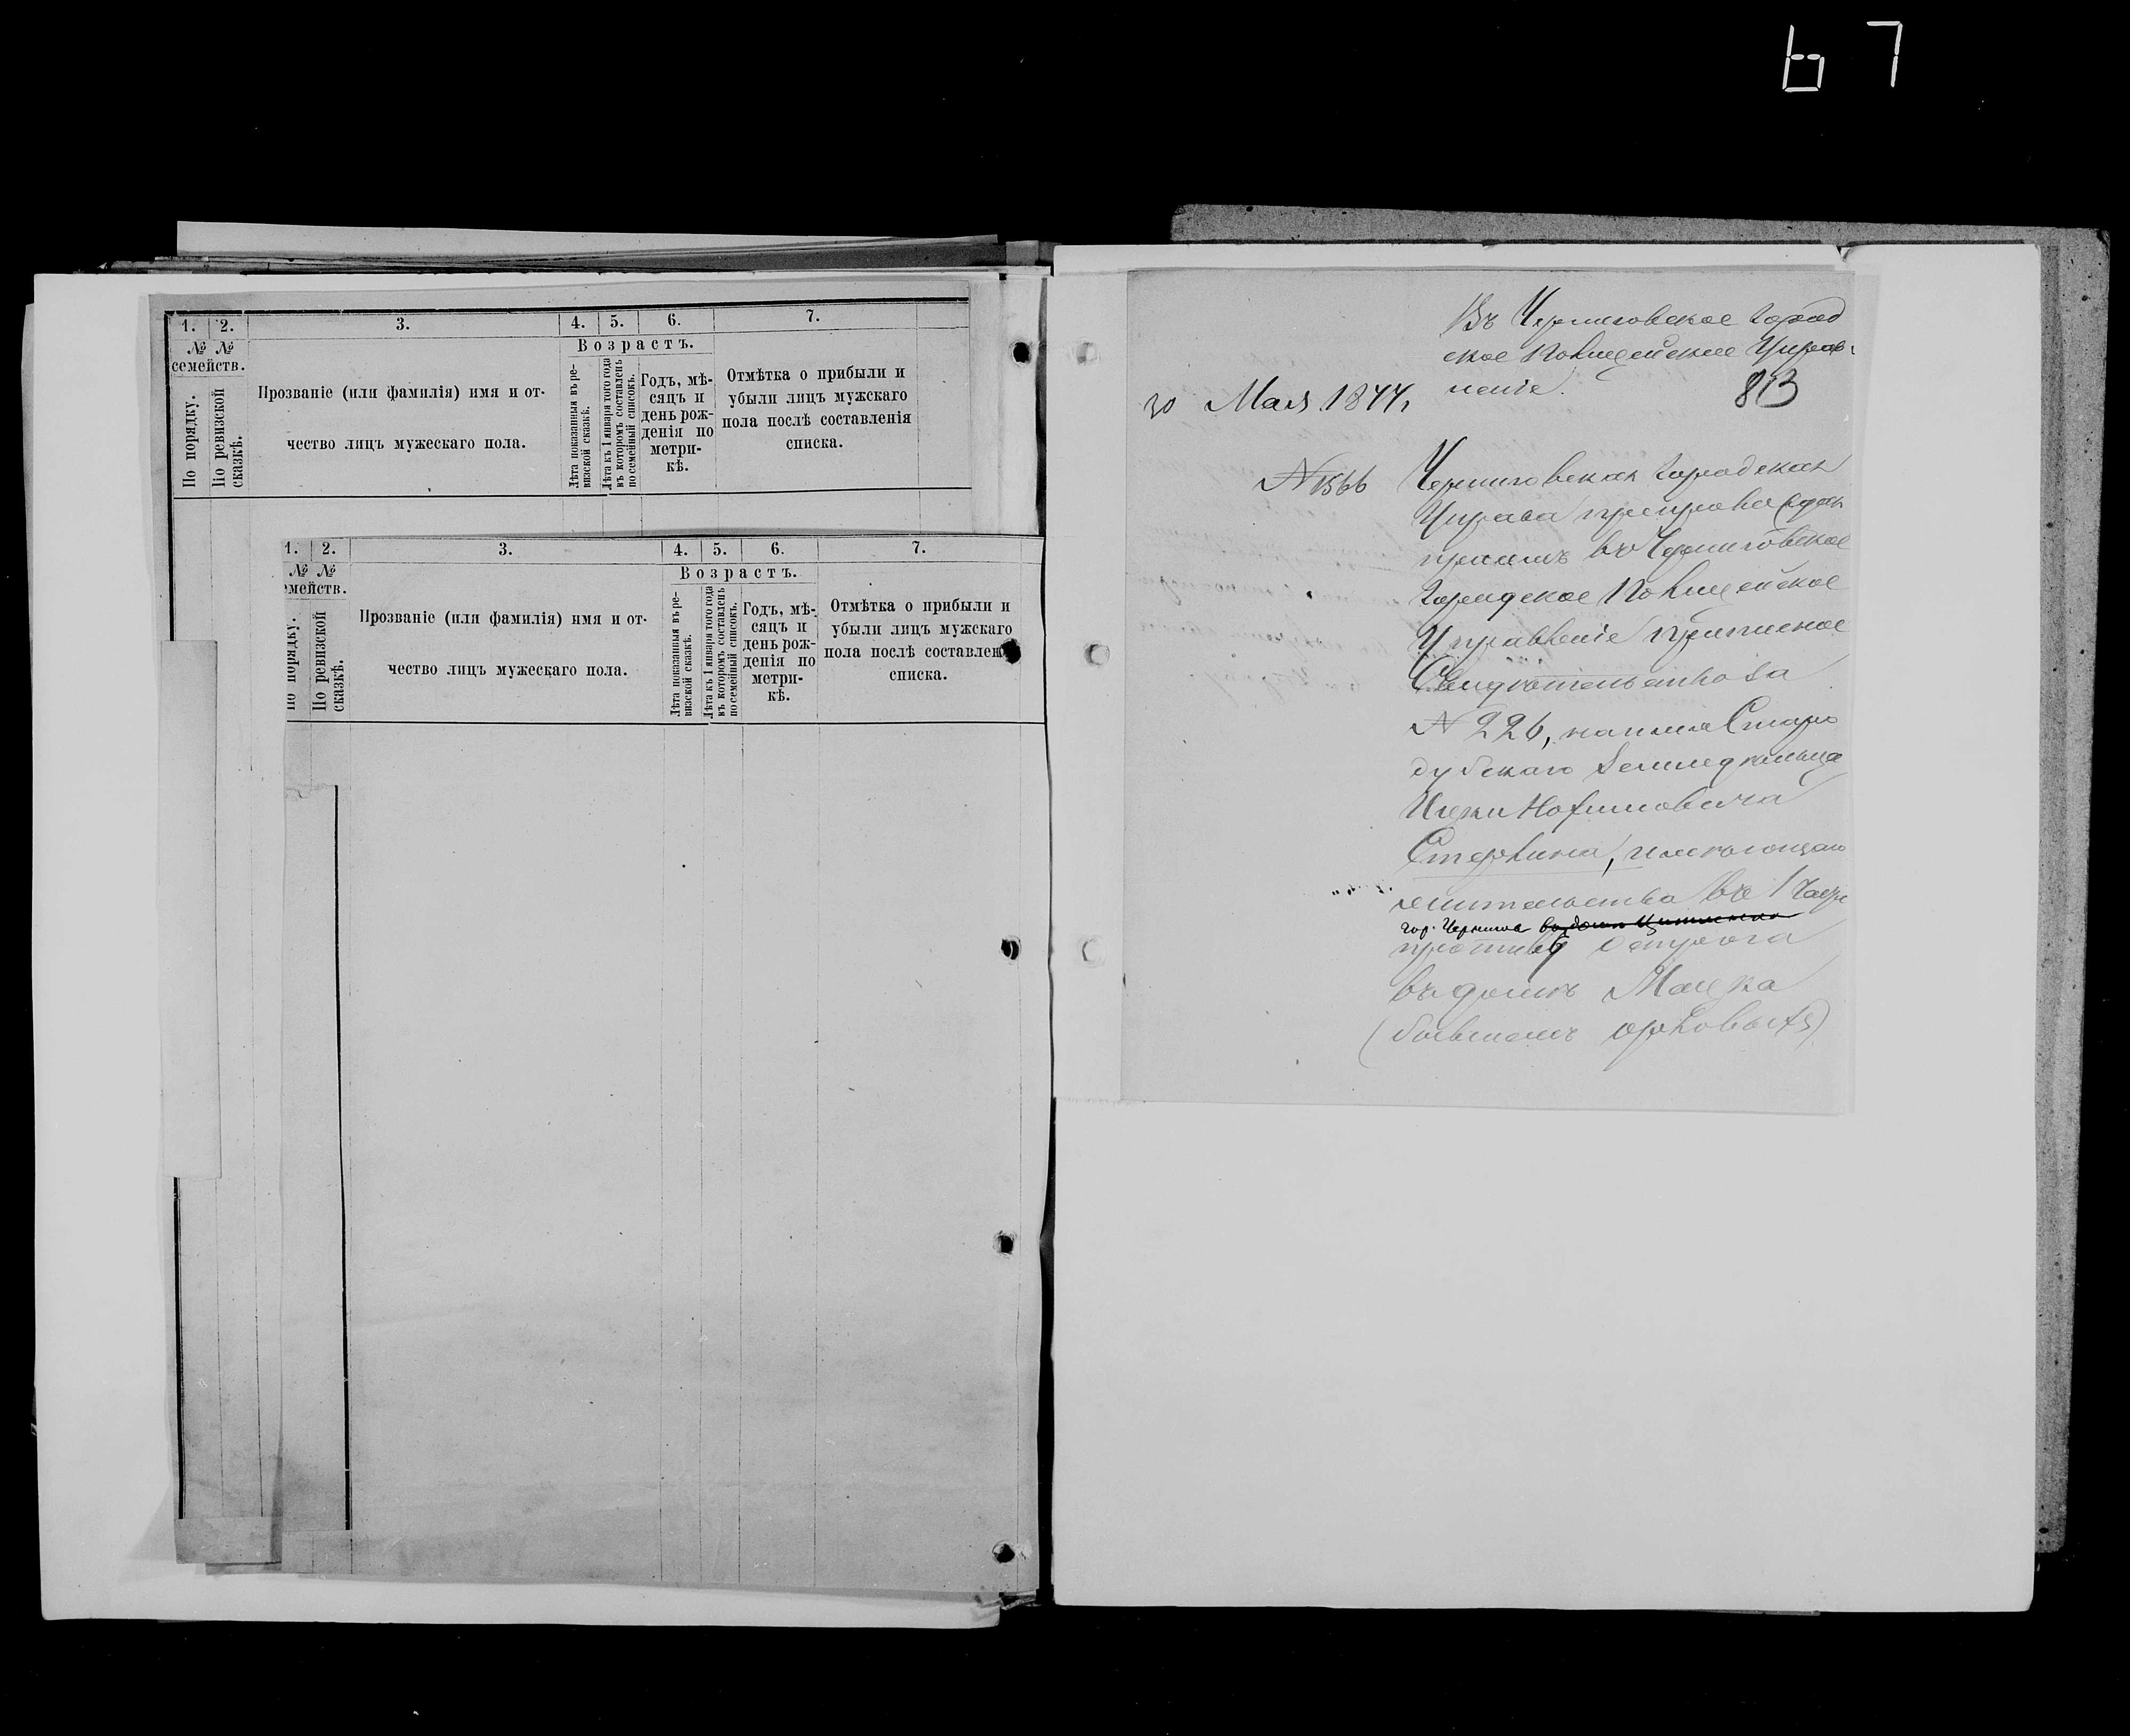 67
1. 2. 3. 4. 5. 6. 7.
№ № семействъ.
По порядку.
По ревизской сказкѣ.
Прозваніе (или фамилія) имя и от-
чество лицъ мужескаго пола.
Возрастъ.
Лѣта показанныя въ ре-
визской сказкѣ.
Лѣта къ 1 января того года
въ которомъ составленъ
посемейный списокъ.
Годъ, мѣ-
сяцъ и
день рож-
денія по
метри-
кѣ.
Отмѣтка о прибыли и
убыли лицъ мужскаго
пола послѣ составленія
списка.
1. 2. 3. 4. 5. 6. 7.
№ №
емействъ.
По порядку.
По ревизской
сказкѣ.
Прозваніе (или фамилія) имя и от-
чество лицъ мужескаго пола.
Возрастъ.
Лѣта показанныя въ ре-
визской сказкѣ.
Лѣта къ 1 января того года
въ которомъ составленъ
посемейный списокъ.
Годъ, мѣ-
сяцъ и
день рож-
денія по
метри-
кѣ.
Отмѣтка о прибыли и
убыли лицъ мужскаго
пола послѣ составлен
списка.
Въ Черниговское Город
ское Полицейское Управ
леніе.
813
30 Мая 1877.
№ 1566
Черниговская Городская
Управа препровождая
при семъ въ Черниговское
Городское Полицейское
Управленіе приписное
Свидѣтельство за
№ 226, на имя Старо
дубскаго Земледѣльца
Стерлина, имѣющаго
жительство въ 1 части
гор. Чернигова
противъ острога
въ домѣ
(бывшемъ